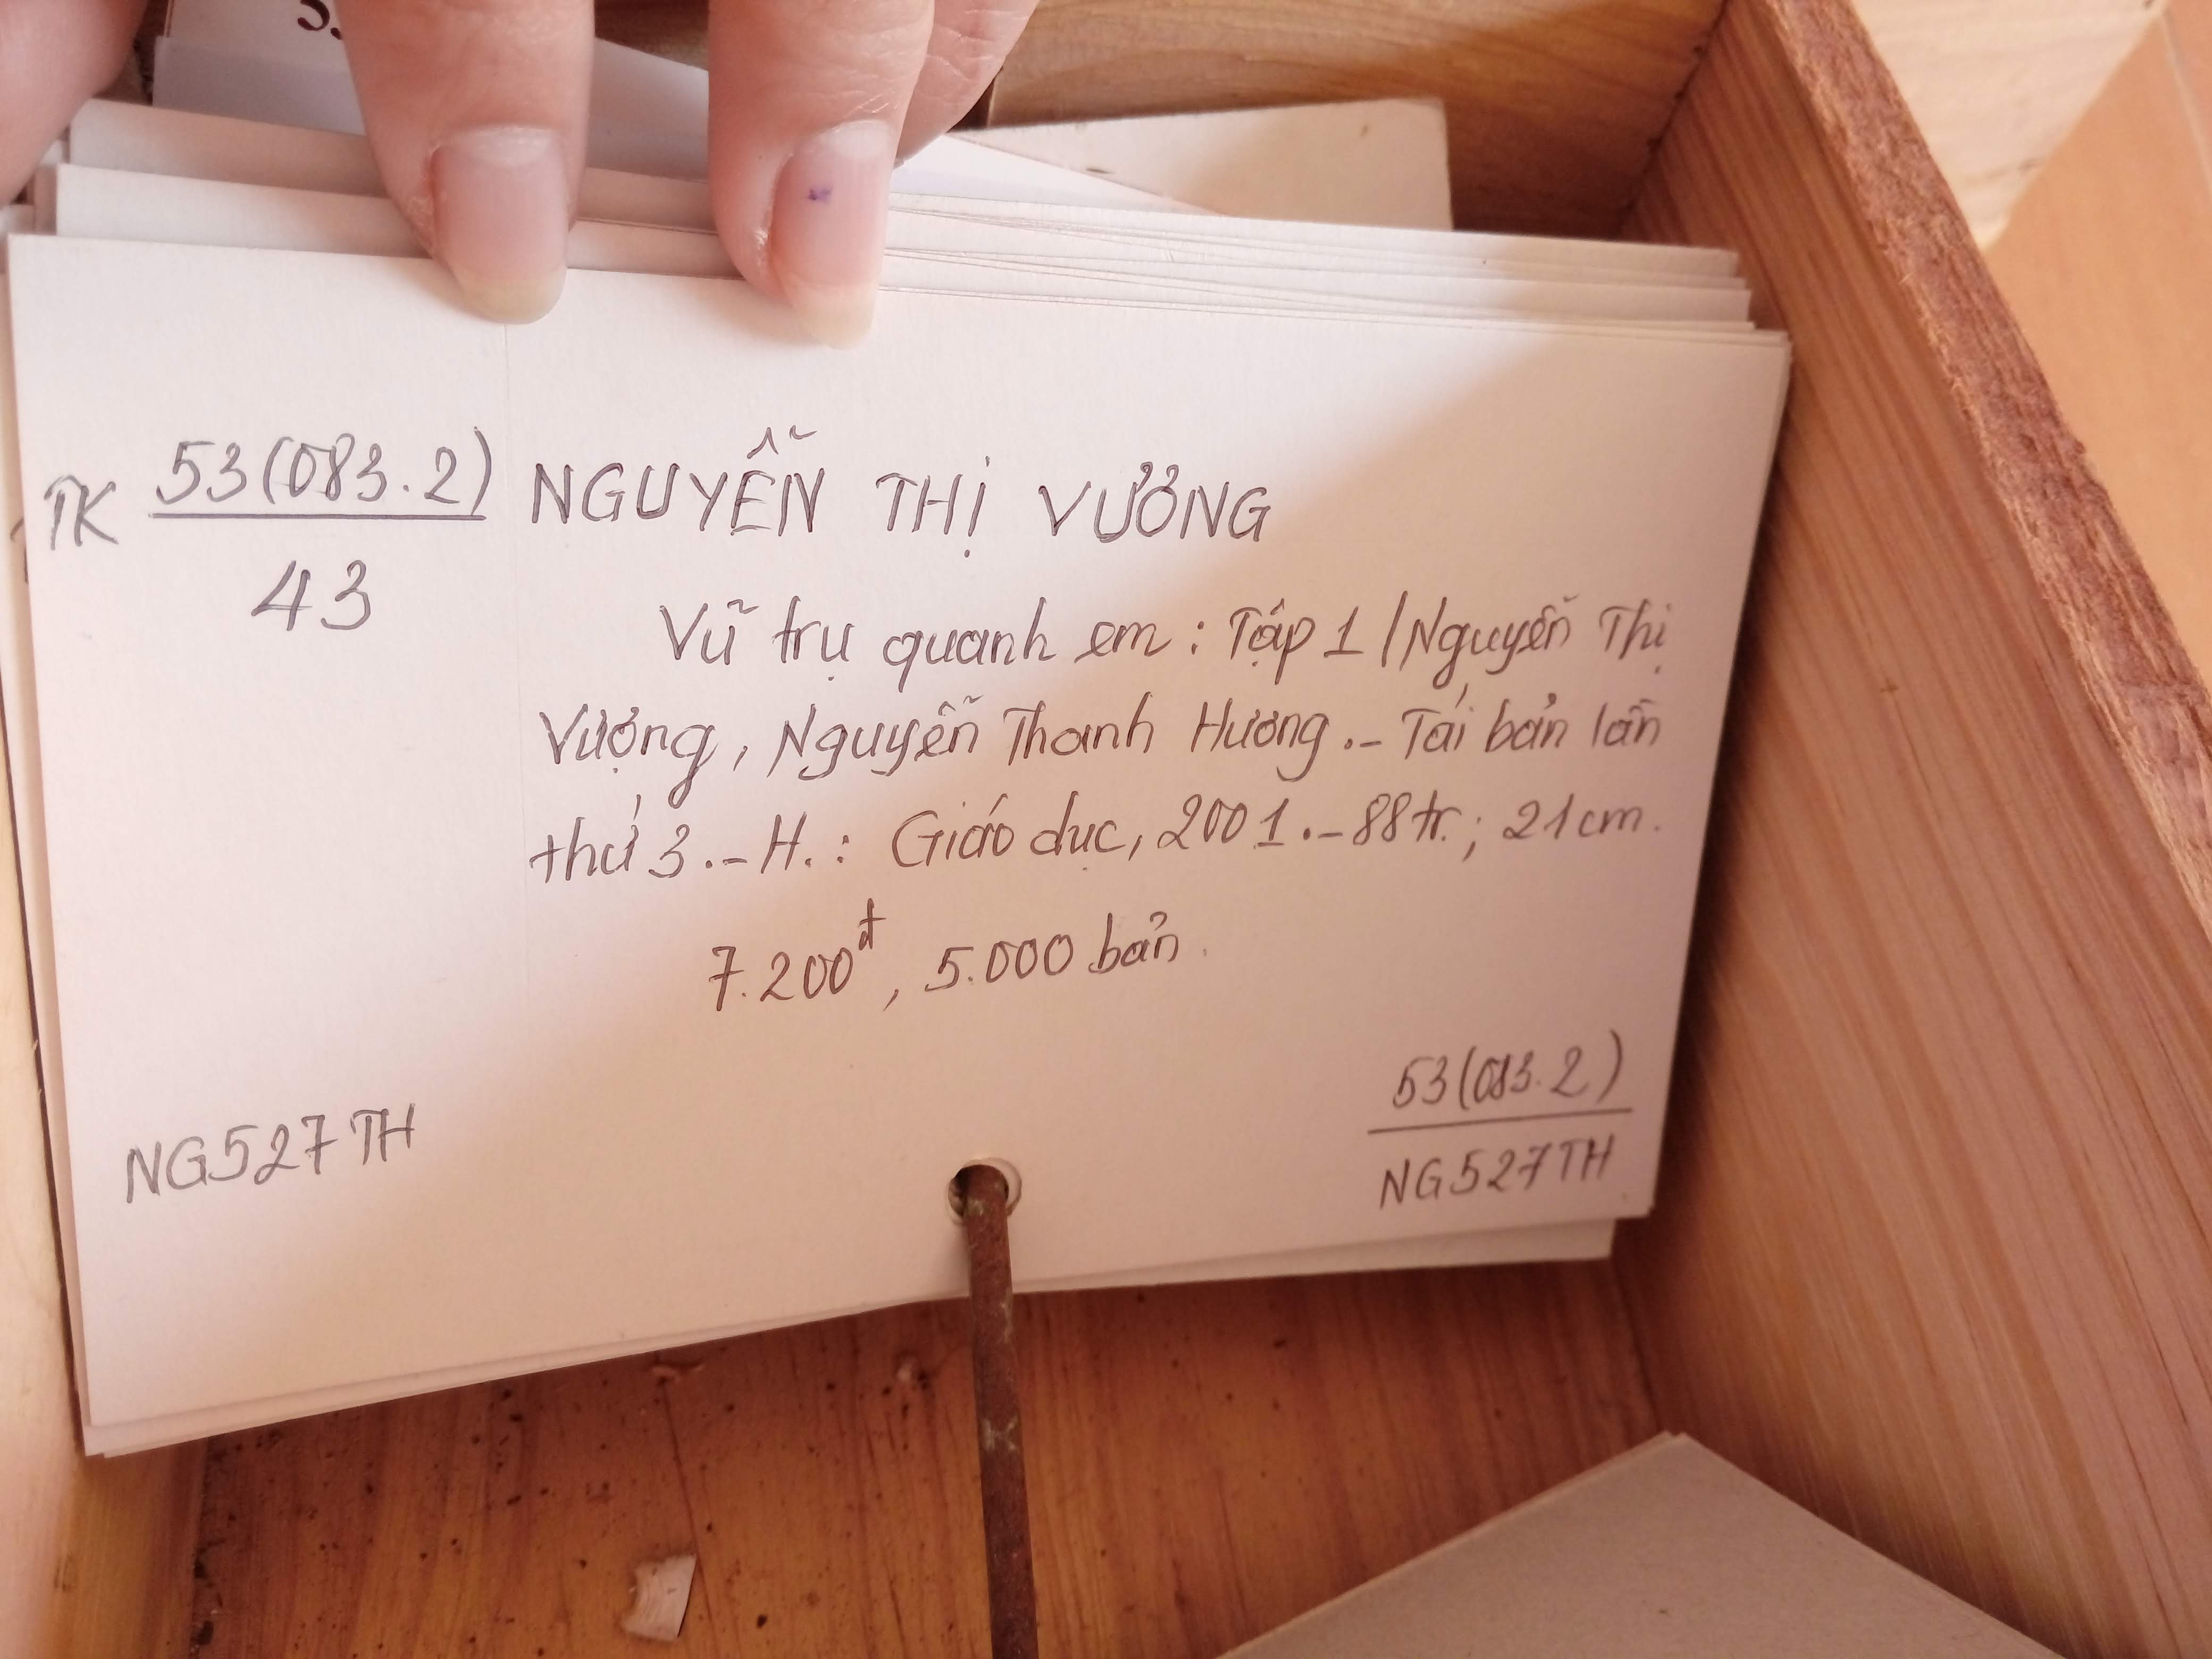 TK 53(083.2) NGUYỄN THỊ VƯỢNG
43
Vũ trụ quanh em : Tập 1 / Nguyễn Thị
Vượng, Nguyễn Thanh Hương .- Tái bản lần
thứ 3 .- H. : Giáo dục, 2001 .- 88tr. ; 21cm.
7.200đ, 5.000 bản.
53(083.2)
NG527TH
NG527TH